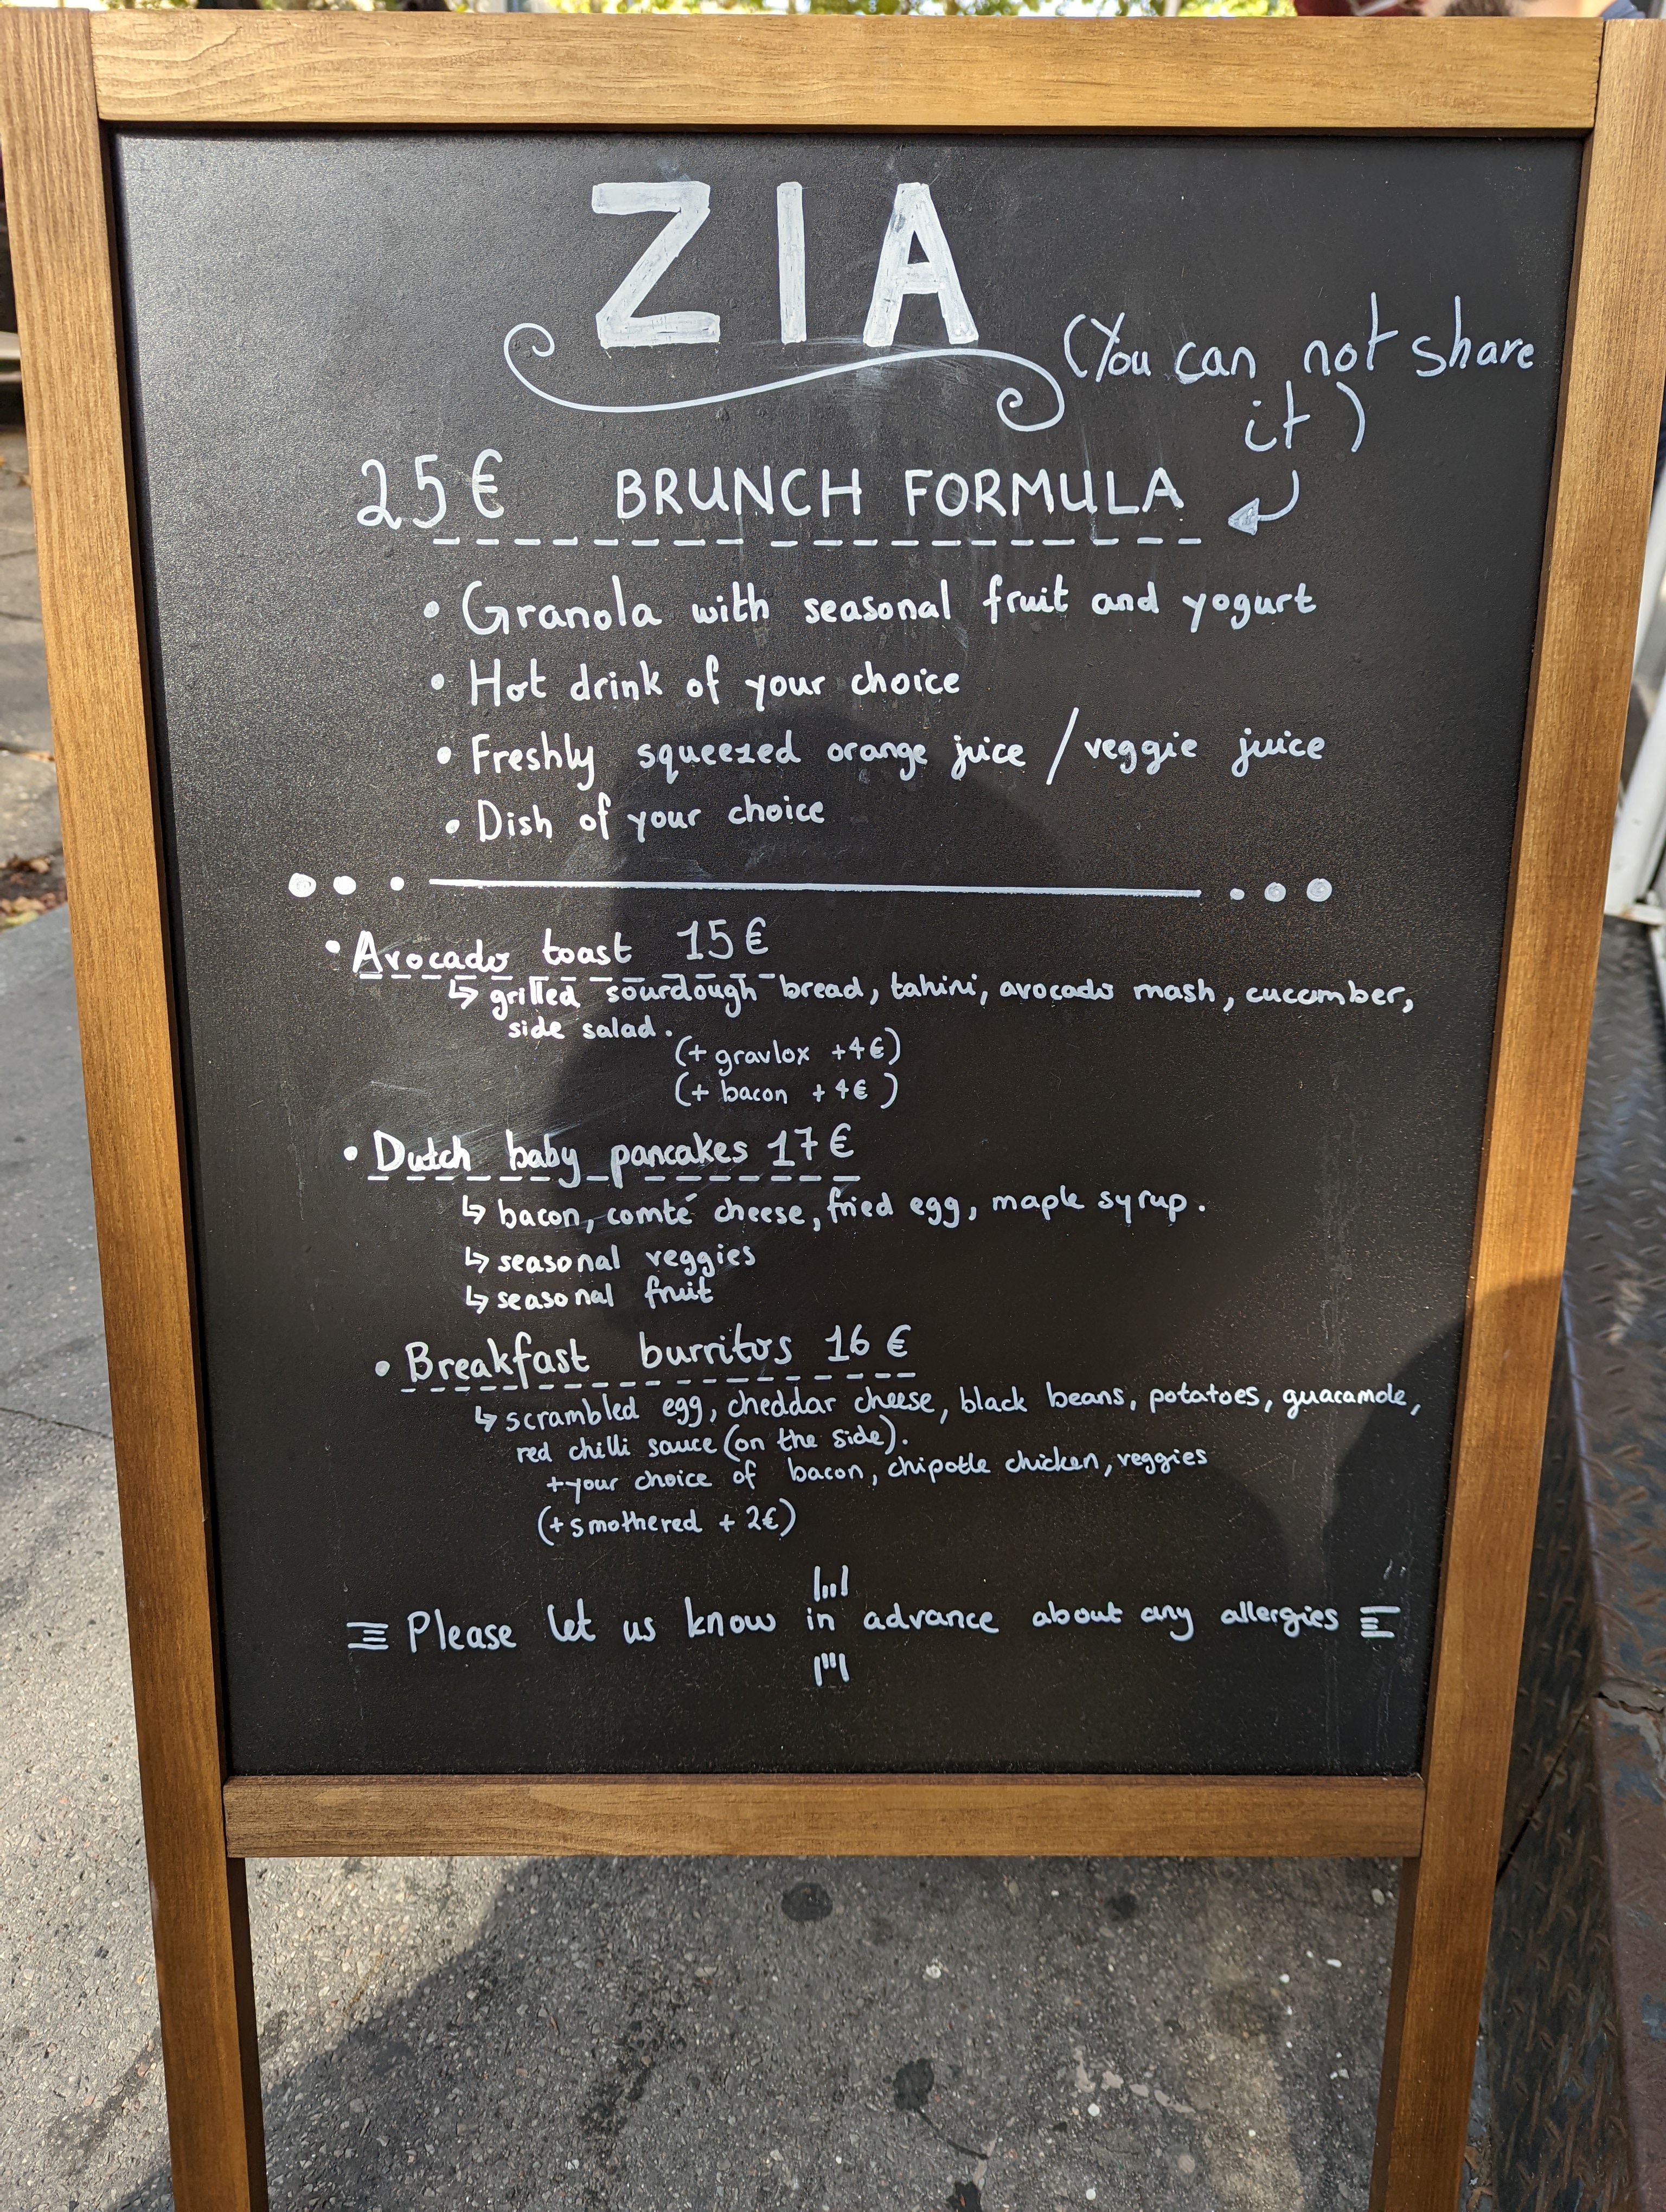 ZIA
(You can not share
it)
25€ BRUNCH FORMULA
• Granola with seasonal fruit and yogurt
• Hot drink of your choice
• Freshly squeezed orange juice / veggie juice
• Dish of your choice
• Avocado toast 15€
↳ grilled sourdough bread, tahini, avocado mash, cucumber,
side salad.
(+ gravlox +4€)
(+ bacon +4€)
• Dutch baby pancakes 17€
↳ bacon, comté cheese, fried egg, maple syrup.
↳ seasonal veggies
↳ seasonal fruit
• Breakfast burritos 16€
↳ scrambled egg, cheddar cheese, black beans, potatoes, guacamole,
red chilli sauce (on the side).
+your choice of bacon, chipotle chicken, veggies
(+smothered + 2€)
Please let us know in advance about any allergies